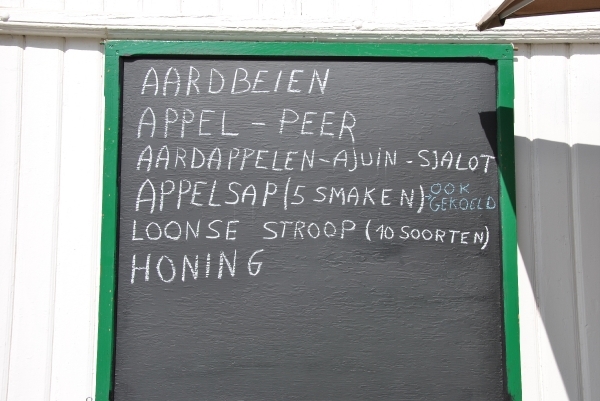 AARDBEIEN
APPEL - PEER
AARDAPPELEN - AJUIN - SJALOT
APPELSAP (5 SMAKEN) OOK GEKOELD
LOONSE STROOP (10 SOORTEN)
HONING